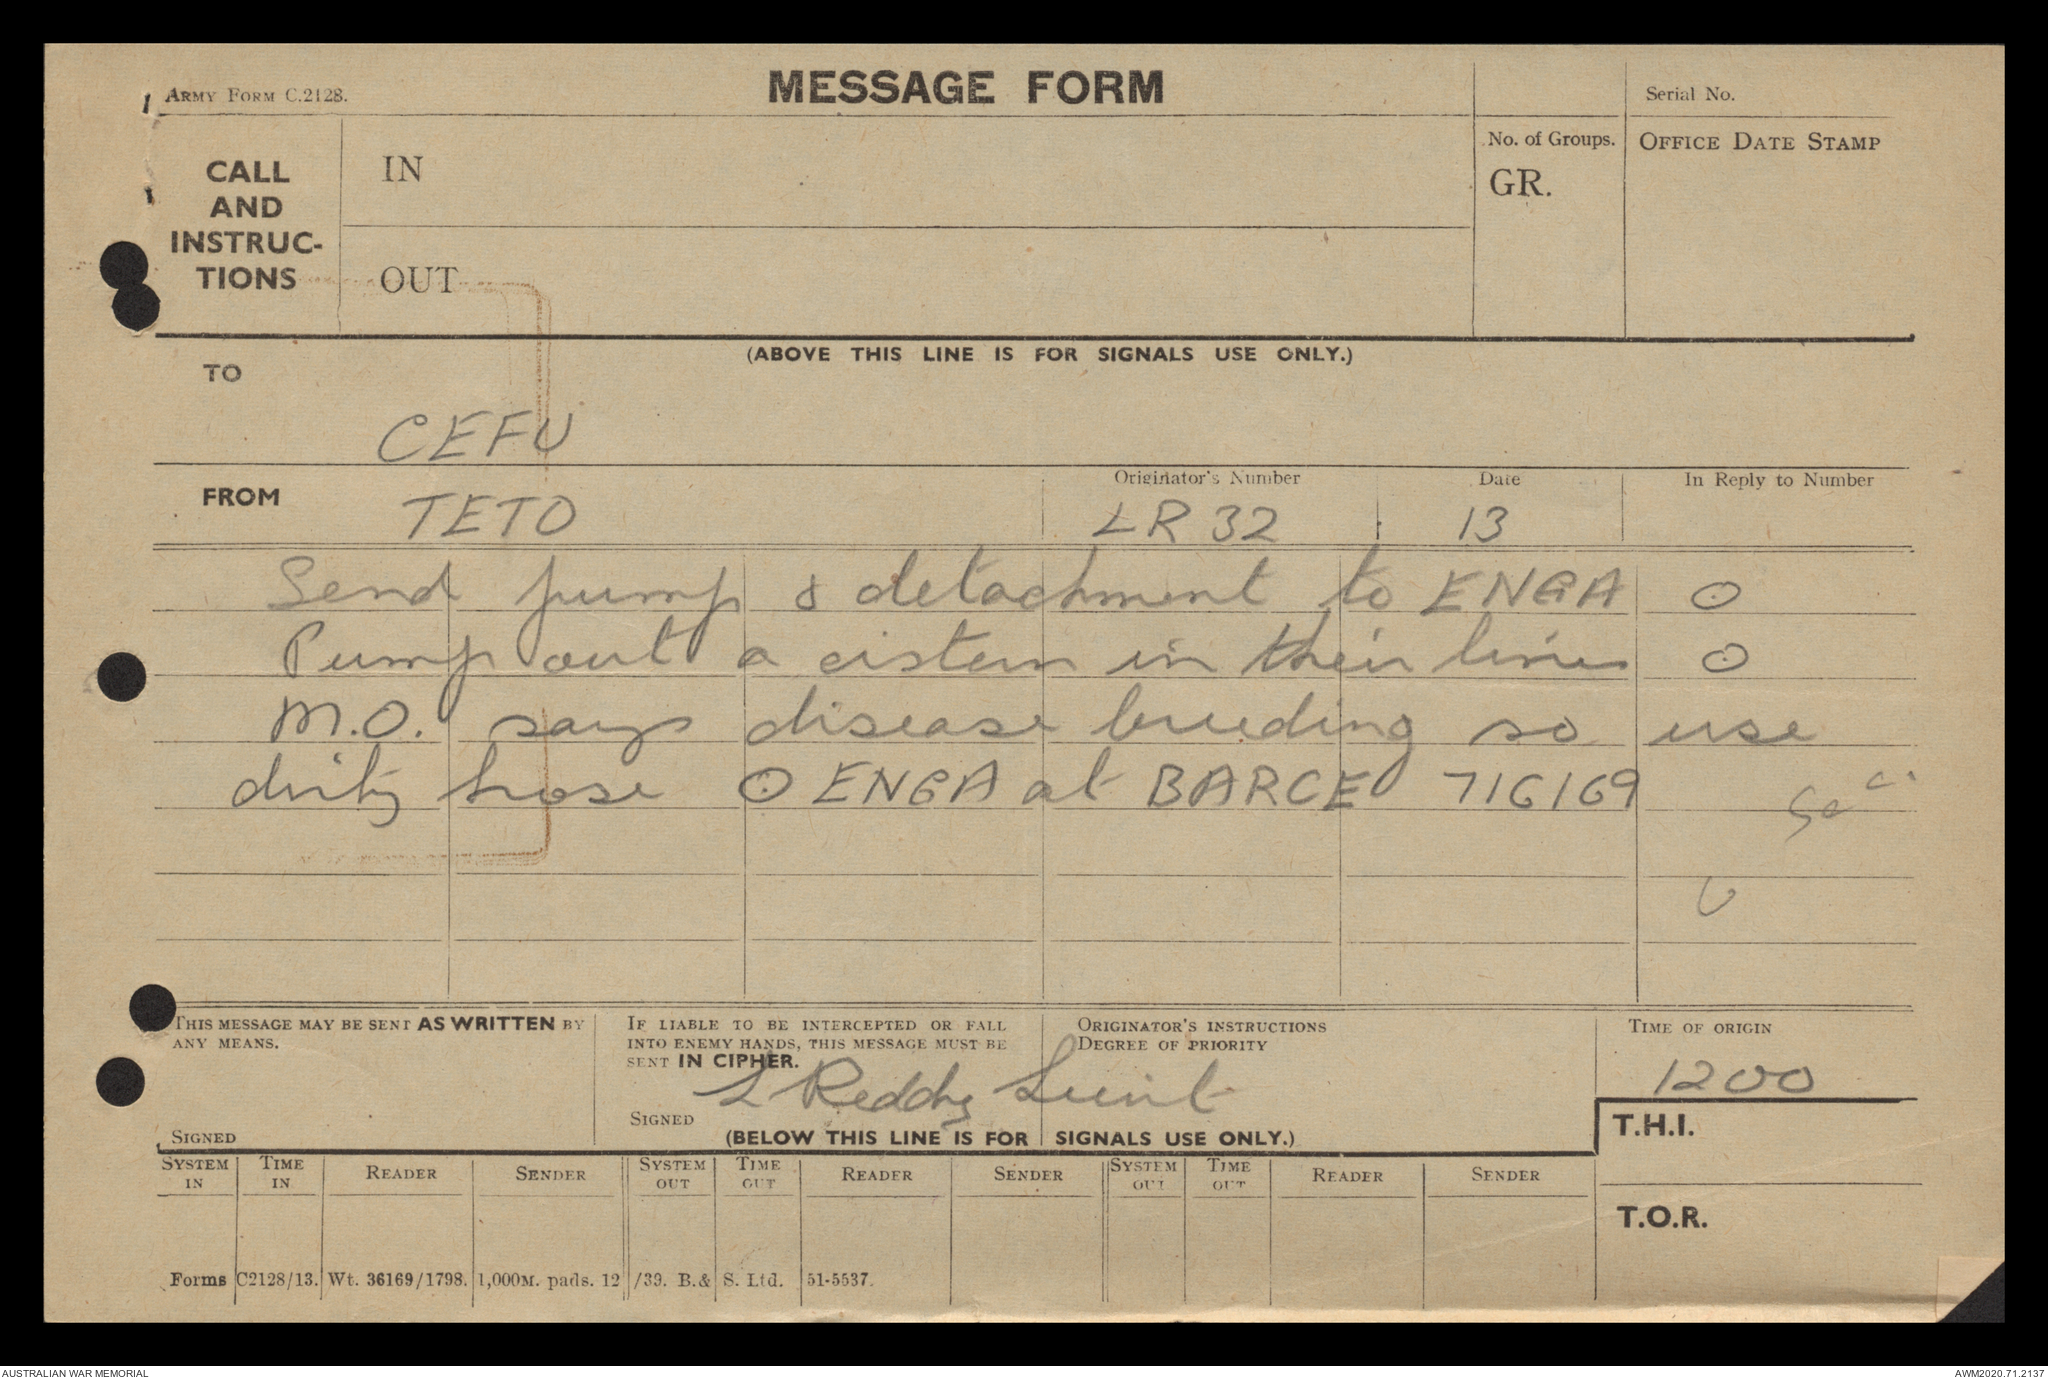 ARMY FORM C.2128.
MESSAGE FORM
Serial No.
CALL AND INSTRUC-TIONS
IN
OUT
No. of Groups.
GR.
OFFICE DATE STAMP
(ABOVE THIS LINE IS FOR SIGNALS USE ONLY.)
TO
CEFU
FROM
TETO
Originator's Number
LR 32
Date
13
In Reply to Number
Send pump & detachment to ENGA O
Pump out a cistern in their lines O
M.O. says disease breeding so use
dirty hose O ENGA at BARCE 716169
THIS MESSAGE MAY BE SENT AS WRITTEN BY
ANY MEANS.
SIGNED
IF LIABLE TO BE INTERCEPTED OR FALL
INTO ENEMY HANDS, THIS MESSAGE MUST BE
SENT IN CIPHER.
SIGNED
L Reddy Lieut
ORIGINATOR'S INSTRUCTIONS
DEGREE OF PRIORITY
TIME OF ORIGIN
1200
(BELOW THIS LINE IS FOR SIGNALS USE ONLY.)
T.H.I.
T.O.R.
SYSTEM IN
TIME IN
READER
SENDER
SYSTEM OUT
TIME OUT
READER
SENDER
SYSTEM OUT
TIME OUT
READER
SENDER
Forms C2128/13. Wt. 36169/1798. 1,000M. pads. 12/39. B.& S. Ltd. 51-5537.
AUSTRALIAN WAR MEMORIAL
AWM2020.71.2137